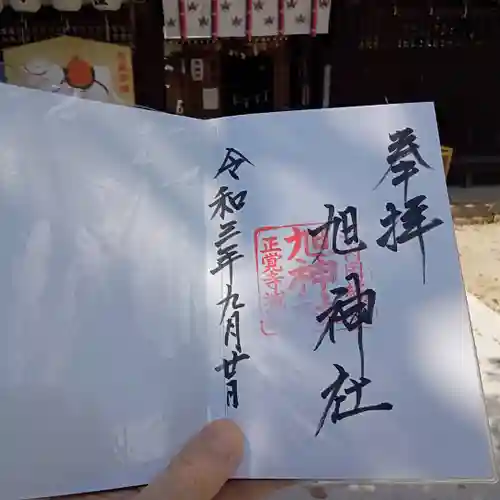 奉拝
旭神社
令和三年九月廿日
旭神社
正覚寺